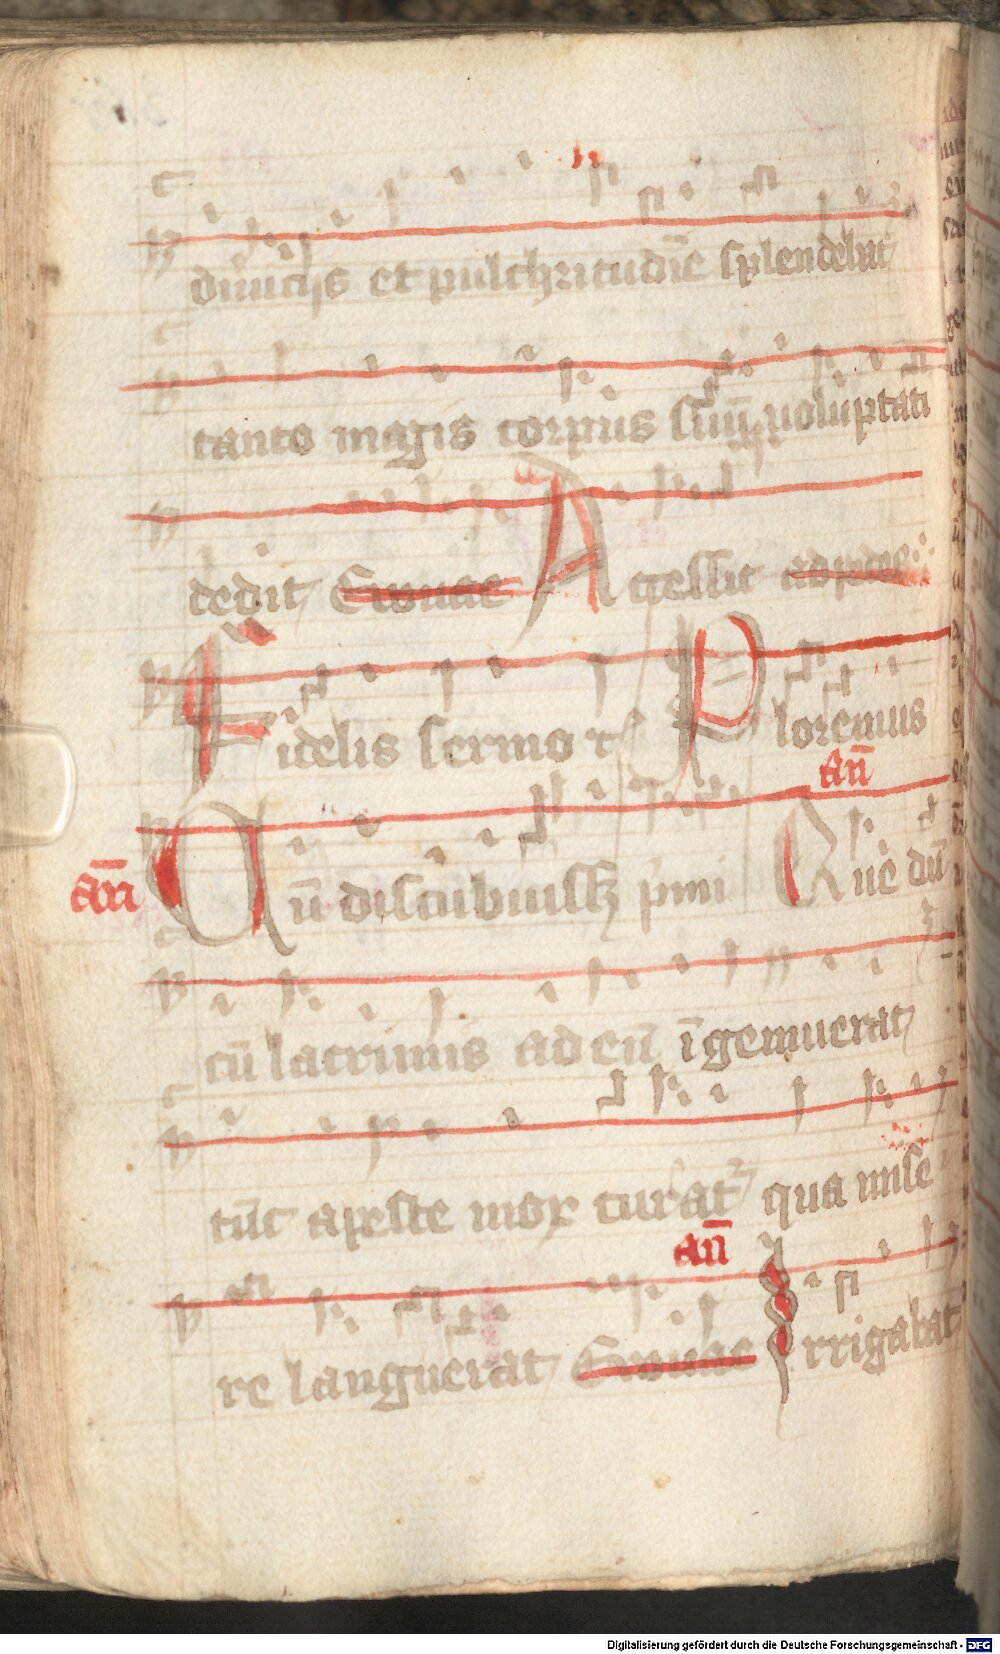 diuicijs et pulchritudīe splendebat
tanto magis corpus suū uoluptati
dedit Euouae Accessit ad pedes
Fidelis sermo r̄ Ploremus
an̄
an̄ Cū discubuissꝫ p̄mi Que dū
cū lacrimis ad eū īgemuerat
tūc a peste mox curat᷑ qua mise
an̄
re languerat Euouae Irrigabat
Digitalisierung gefördert durch die Deutsche Forschungsgemeinschaft - DFG